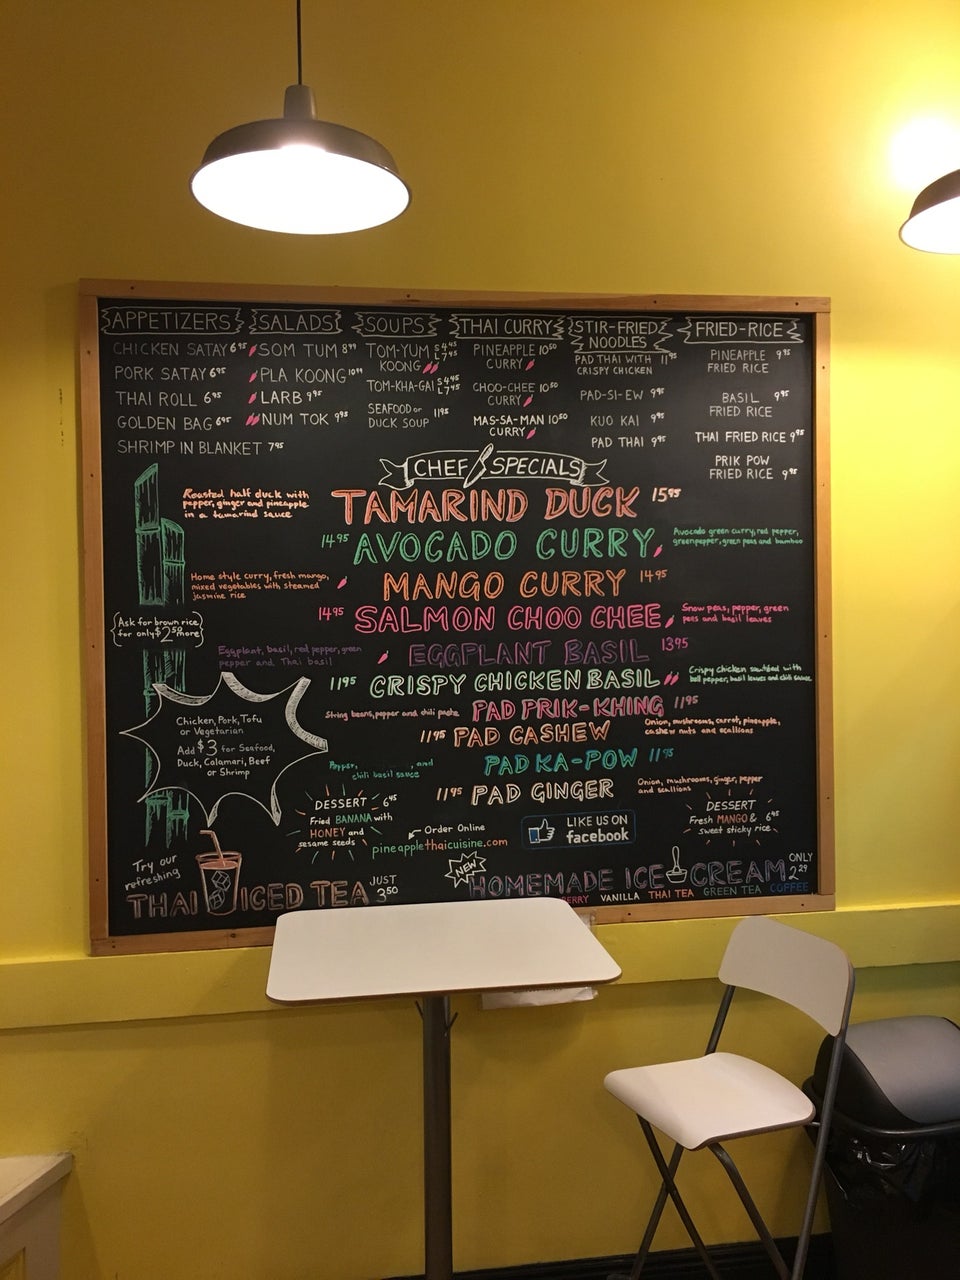 APPETIZERS
CHICKEN SATAY 6.95
PORK SATAY 6.95
THAI ROLL 6.95
GOLDEN BAG 6.95
SHRIMP IN BLANKET 7.95
SALADS
SOM TUM 8.99
PLA KOONG 10.99
LARB 9.95
NUM TOK 9.95
SOUPS
TOM-YUM S 4.45
KOONG L 7.45
TOM-KHA-GAI S 4.45
L 7.45
SEAFOOD OR 11.95
DUCK SOUP
THAI CURRY
PINEAPPLE 10.50
CURRY
CHOO-CHEE 10.50
CURRY
MAS-SA-MAN 10.50
CURRY
STIR-FRIED
NOODLES
PAD THAI WITH 11.95
CRISPY CHICKEN
PAD-SI-EW 9.95
KUO KAI 9.95
PAD THAI 9.95
FRIED-RICE
PINEAPPLE 9.95
FRIED RICE
BASIL 9.95
FRIED RICE
THAI FRIED RICE 9.95
PRIK POW
FRIED RICE 9.95
CHEF SPECIALS
Roasted half duck with
pepper, ginger and pineapple
in a tamarind sauce
TAMARIND DUCK 15.95
14.95 AVOCADO CURRY
Avocado green curry, red pepper,
green pepper, green peas and bamboo
Home style curry, fresh mango,
mixed vegetables with steamed
jasmine rice
MANGO CURRY 14.95
14.95 SALMON CHOO CHEE
Snow peas, pepper, green
peas and basil leaves
Ask for brown rice
for only $2.50 more
Eggplant, basil, red pepper, green
pepper and Thai basil
EGGPLANT BASIL 13.95
11.95 CRISPY CHICKEN BASIL
Crispy chicken sautéed with
bell pepper, basil leaves and chili sauce
String beans, pepper and chili paste
PAD PRIK-KHING 11.95
11.95 PAD CASHEW
Onion, mushrooms, carrot, pineapple,
cashew nuts and scallions
Chicken, Pork, Tofu
or Vegetarian
Add $3 for Seafood,
Duck, Calamari, Beef
or Shrimp
PAD KA-POW 11.95
Pepper, and
chili basil sauce
11.95 PAD GINGER
Onion, mushrooms, ginger, pepper
and scallions
DESSERT 6.95
Fried BANANA with
HONEY and
sesame seeds
Order Online
pineapplethaicuisine.com
LIKE US ON
facebook
DESSERT
Fresh MANGO & 6.95
sweet sticky rice
Try our
refreshing
THAI ICED TEA JUST
3.50
NEW
HOMEMADE ICE CREAM ONLY
2.29
BERRY VANILLA THAI TEA GREEN TEA COFFEE